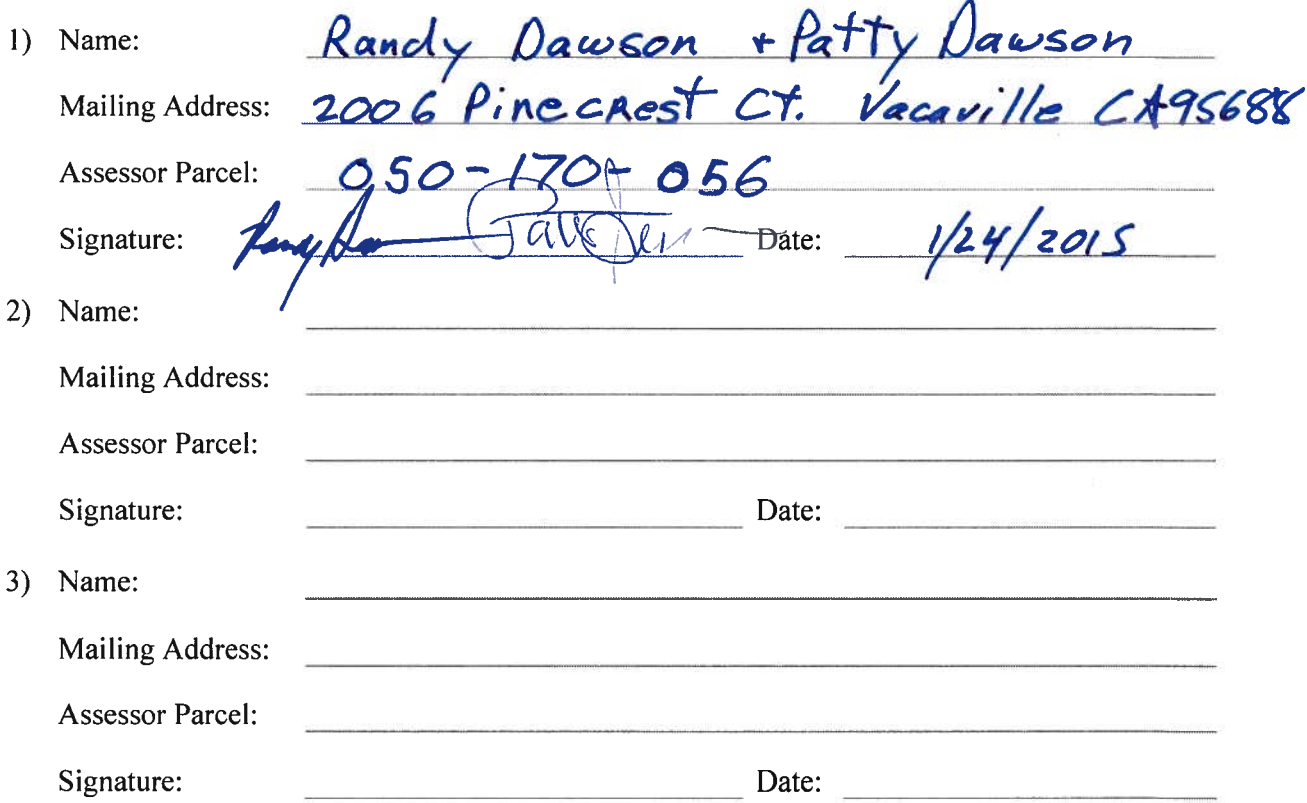 1) Name: Randy Dawson + Patty Dawson
Mailing Address: 2006 Pinecrest Ct. Vacaville CA 95688
Assessor Parcel: 050-170-056
Signature: Date: 1/24/2015
2) Name:
Mailing Address:
Assessor Parcel:
Signature: Date:
3) Name:
Mailing Address:
Assessor Parcel:
Signature: Date: